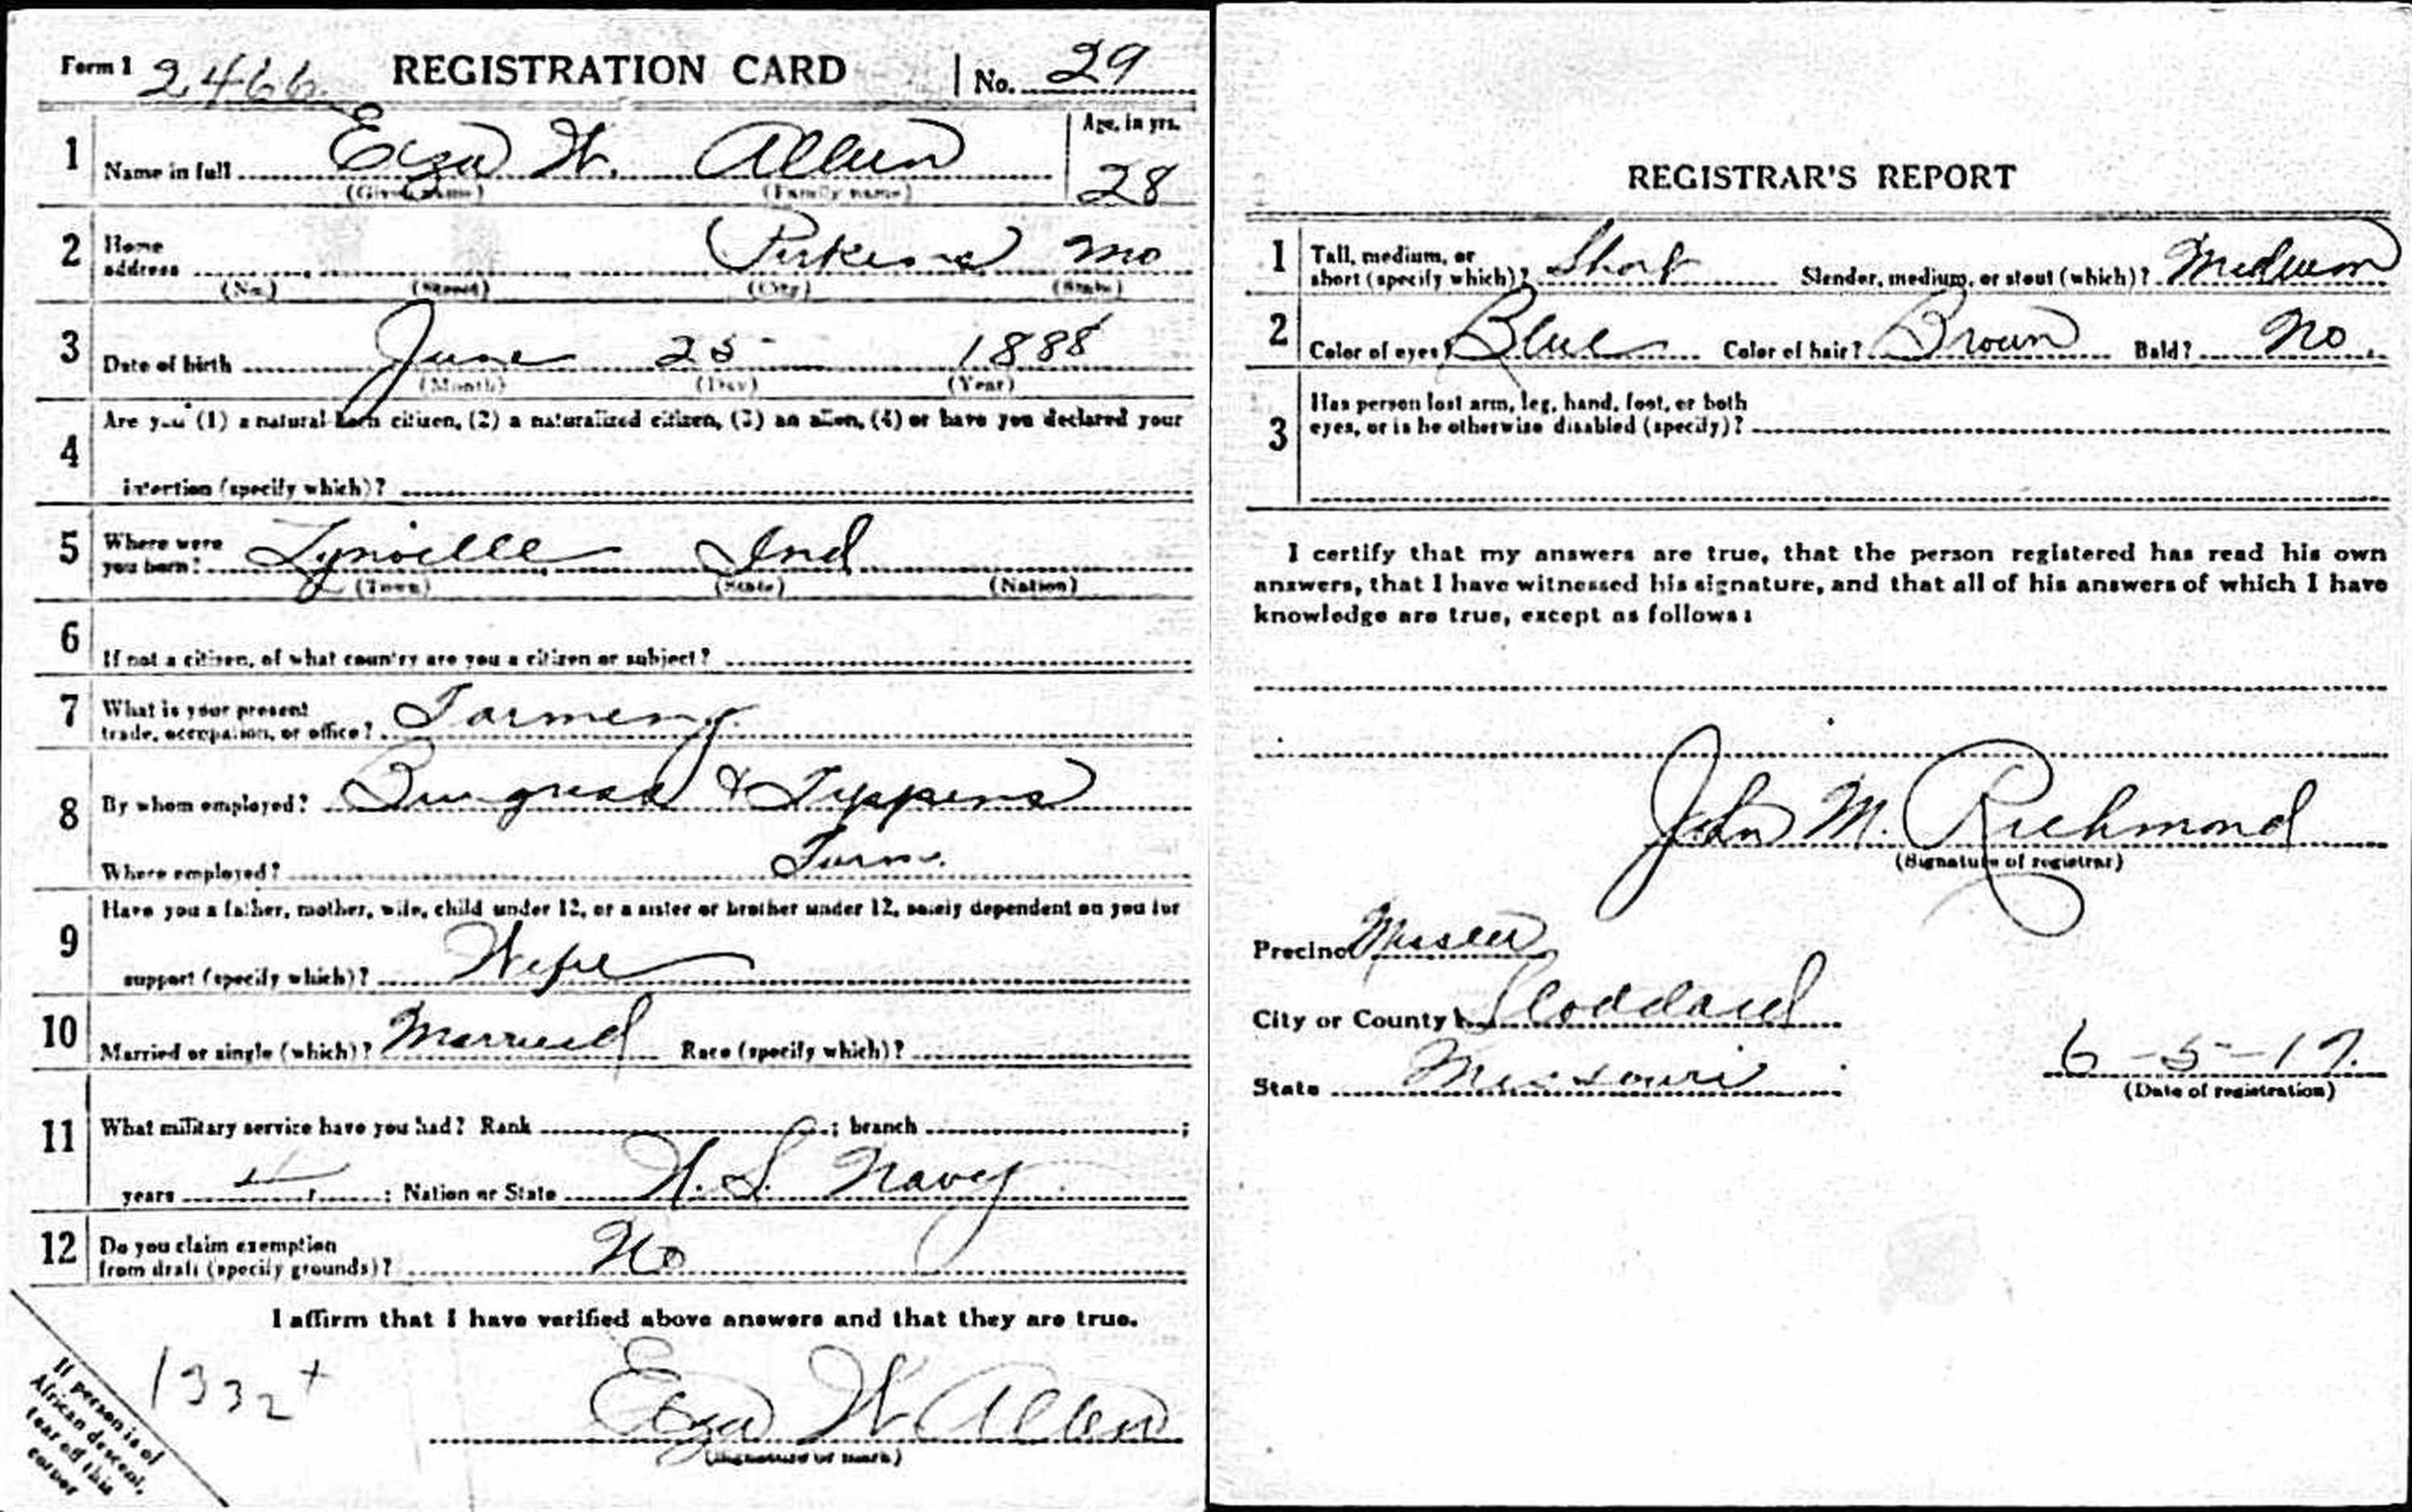 Form 1 2466 REGISTRATION CARD No. 29
1 Name in full Ezra W. Allen Age, in yrs.
(Given name) (Family name) 28
2 Home address Perkins Mo
(No.) (Street) (City) (State)
3 Date of birth June 25 1888
(Month) (Day) (Year)
4 Are you (1) a natural-born citizen, (2) a naturalized citizen, (3) an alien, (4) or have you declared your
intention (specify which)?
5 Where were you born? Lynville Ind
(Town) (State) (Nation)
6 If not a citizen, of what country are you a citizen or subject?
7 What is your present
trade, occupation, or office? Farming
8 By whom employed? Burgess & Tippens
Where employed? Farm.
9 Have you a father, mother, wife, child under 12, or a sister or brother under 12, solely dependent on you for
support (specify which)? Wife
10 Married or single (which)? Married Race (specify which)?
11 What military service have you had? Rank ; branch ;
years 4 ; Nation or State U.S. Navy
12 Do you claim exemption
from draft (specify grounds)? No
I affirm that I have verified above answers and that they are true.
1332 +
Ezra W Allen
(Signature or mark)
If person is of
African descent,
tear off this
corner
REGISTRAR'S REPORT
1 Tall, medium, or
short (specify which)? Short Slender, medium, or stout (which)? Medium
2 Color of eyes? Blue Color of hair? Brown Bald? No
3 Has person lost arm, leg, hand, foot, or both
eyes, or is he otherwise disabled (specify)?
I certify that my answers are true, that the person registered has read his own
answers, that I have witnessed his signature, and that all of his answers of which I have
knowledge are true, except as follows:
John M. Richmond
(Signature of registrar)
Precinct
City or County Stoddard
State Missouri 6-5-17.
(Date of registration)